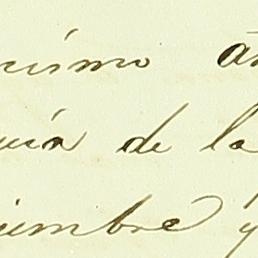 rismo añ
uia de la
iembre y